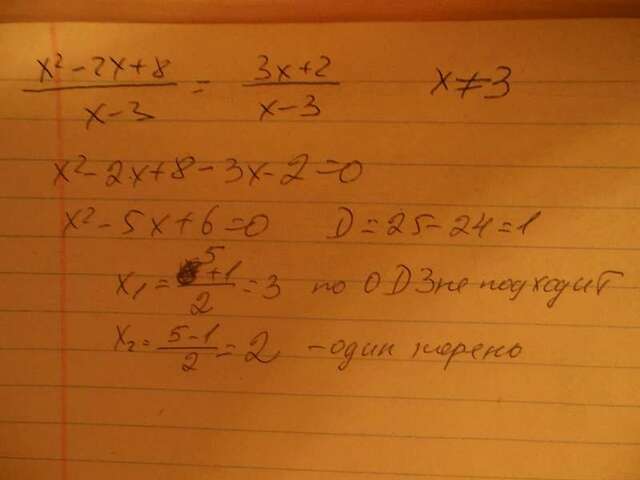 x²-2x+8/x-3 = 3x+2/x-3 x≠3
x²-2x+8-3x-2=0
x²-5x+6=0 D=25-24=1
x₁=5+1/2=3 по ОДЗ не подходит
x₂=5-1/2=2 -один корень